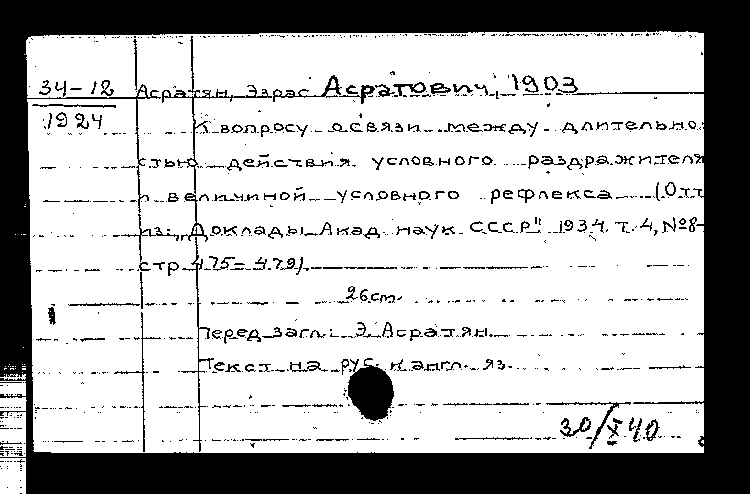 34-12
1924
Асратян, Эзрас Асратович, 1903
К вопросу о связи между длительно
стью действия условного раздражителя
и величиной условного рефлекса (Отт
из: „Доклады Акад. наук СССР". 1934. т. 4, №8-
стр 475-479).
26 cm.
Перед загл.: Э. Асратян.
Текст на рус. и англ. яз.
30/X 40